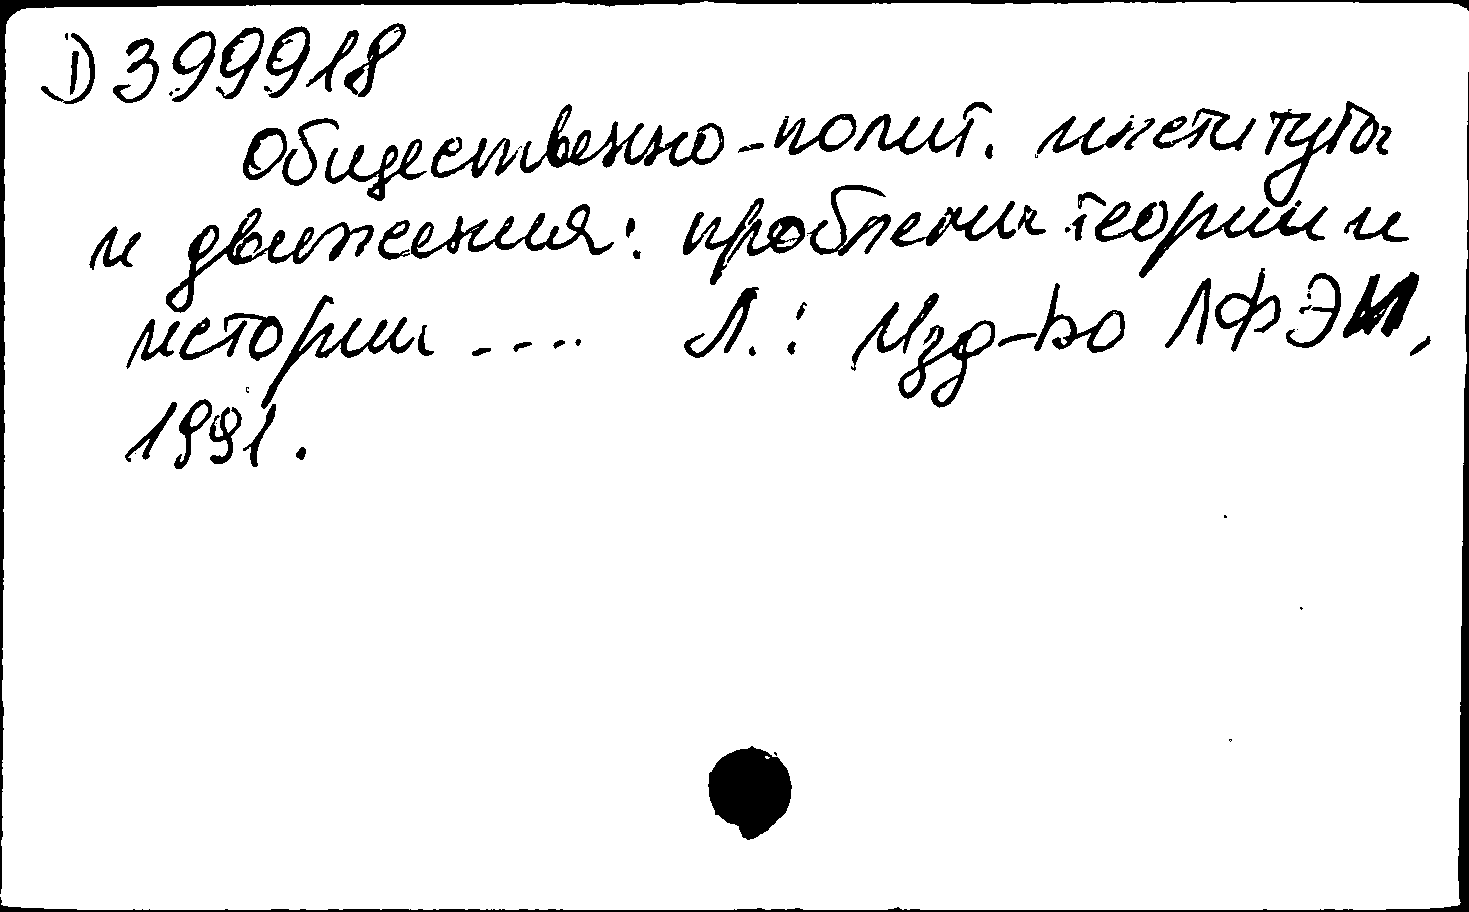 D 399918
Общественно-полит. институты
и движения: проблемы теории и
истории .... Л.: Изд-во ЛФЭИ,
1991.